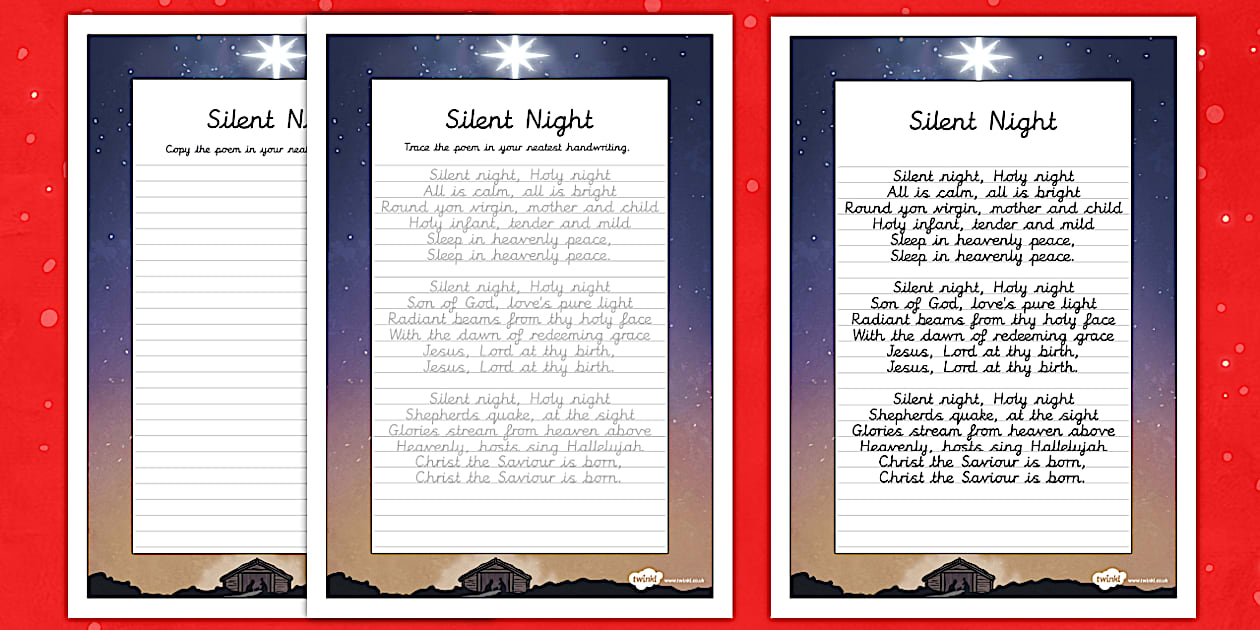 Silent N
Copy the poem in your
Silent Night
Trace the poem in your neatest handwriting.
Silent night, Holy night
All is calm, all is bright
Round yon virgin, mother and child
Holy infant, tender and mild
Sleep in heavenly peace,
Sleep in heavenly peace.
Silent night, Holy night
Son of God, love's pure light
Radiant beams from thy holy face
With the dawn of redeeming grace
Jesus, Lord at thy birth,
Jesus, Lord at thy birth.
Silent night, Holy night
Shepherds quake, at the sight
Glories stream from heaven above
Heavenly, hosts sing Hallelujah
Christ the Saviour is born,
Christ the Saviour is born.
twinkl www.twinkl.co.uk
Silent Night
Silent night, Holy night
All is calm, all is bright
Round yon virgin, mother and child
Holy infant, tender and mild
Sleep in heavenly peace,
Sleep in heavenly peace.
Silent night, Holy night
Son of God, love's pure light
Radiant beams from thy holy face
With the dawn of redeeming grace
Jesus, Lord at thy birth,
Jesus, Lord at thy birth.
Silent night, Holy night
Shepherds quake, at the sight
Glories stream from heaven above
Heavenly, hosts sing Hallelujah
Christ the Saviour is born,
Christ the Saviour is born.
twinkl www.twinkl.co.uk